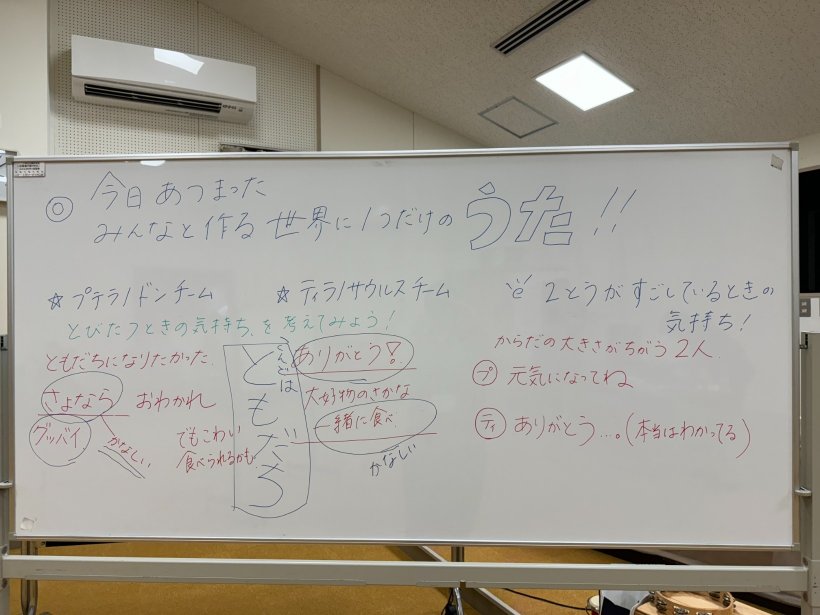 ◎ 今日あつまった
みんなと作る世界に1つだけのうた!!
☆プテラノドンチーム
☆ティラノサウルスチーム
とびたつときの気持ち、を考えてみよう!
ともだちになりたかった
さよなら おわかれ
グッバイ
かなしい
でもこわい
食べられるかも
ともだち
ありがとう!
大好物のさかな
一緒に食べ
かなしい
2とうがすごしているときの
気持ち!
からだの大きさがちがう2人
プ 元気になってね
ティ ありがとう…。(本当はわかってる)